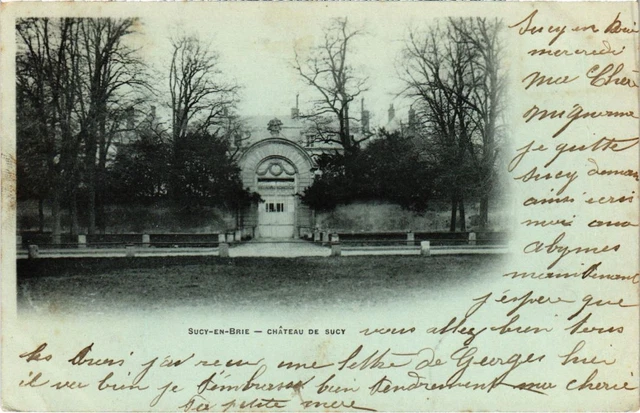 Sucy en Brie
mercredi
Ma Chere
mignonne
je quitte
Sucy demain
ainsi ecris
moi aux
Abymes
maintenant
j'espere que
SUCY-EN-BRIE — CHÂTEAU DE SUCY
vous allez bien tous
les j'ai recu une lettre de Georges hier
il va bien je t'embrasse bien tendrement ma cherie
Ta petite mere